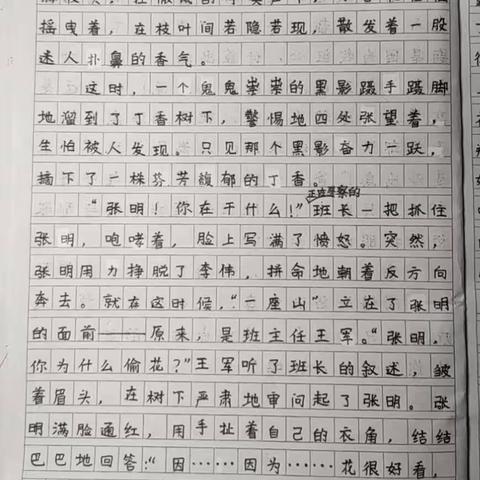 摇曳着，在枝叶间若隐若现，散发着一股
迷人扑鼻的香气。
这时，一个鬼鬼祟祟的黑影蹑手蹑脚
地溜到了丁香树下，警惕地四处张望着，
生怕被人发现。只见那个黑影奋力一跃，
摘下了一株芬芳馥郁的丁香。
正在寻察的
“张明！你在干什么！”班长一把抓住
张明，咆哮着，脸上写满了愤怒。突然，
张明用力挣脱了李伟，拼命地朝着反方向
奔去。就在这时候，“一座山”立在了张明
的面前——原来，是班主任王军。“张明，
你为什么偷花？”王军听了班长的叙述，皱
着眉头，在树下严肃地审问起了张明。张
明满脸通红，用手扯着自己的衣角，结结
巴巴地回答：“因……因为……花很好看，